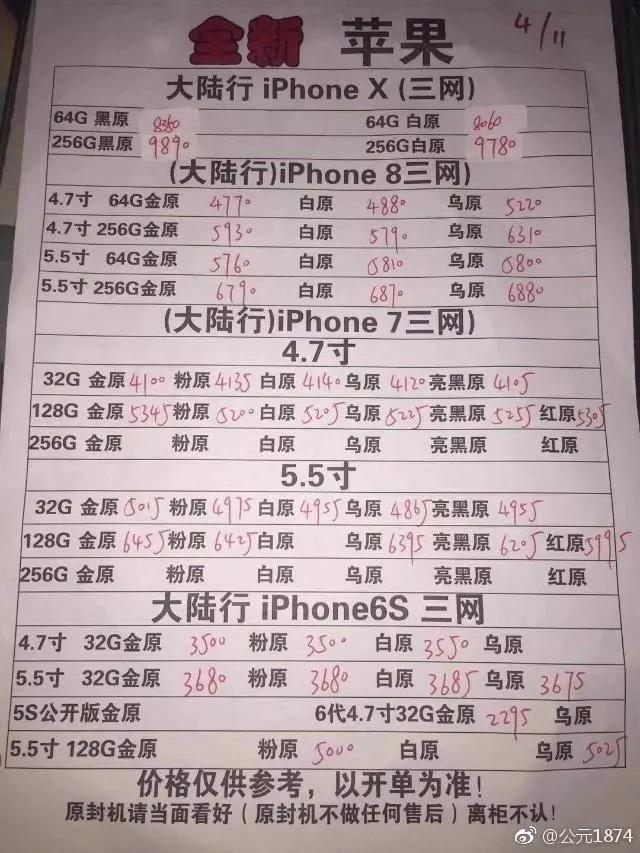 全新 苹果 4/11
大陆行 iPhone X (三网)
64G 黑原 8350 64G 白原 8060
256G黑原 9890 256G白原 9780
(大陆行)iPhone 8三网)
4.7寸 64G金原 4770 白原 4880 乌原 5220
4.7寸 256G金原 5930 白原 5790 乌原 6310
5.5寸 64G金原 5760 白原 5810 乌原 5800
5.5寸 256G金原 6790 白原 6870 乌原 6880
(大陆行)iPhone 7三网)
4.7寸
32G 金原 4100 粉原 4135 白原 4140 乌原 4120 亮黑原 4105
128G 金原 5345 粉原 5200 白原 5205 乌原 5225 亮黑原 5255 红原 5305
256G 金原 粉原 白原 乌原 亮黑原 红原
5.5寸
32G 金原 5015 粉原 4975 白原 4955 乌原 4865 亮黑原 4955
128G 金原 6455 粉原 6425 白原 乌原 6395 亮黑原 6205 红原 5995
256G 金原 粉原 白原 乌原 亮黑原 红原
大陆行 iPhone6S 三网
4.7寸 32G金原 3500 粉原 3500 白原 3550 乌原
5.5寸 32G金原 3680 粉原 3680 白原 3685 乌原 3675
5S公开版金原 6代4.7寸32G金原 2295 乌原
5.5寸 128G金原 粉原 5000 白原 乌原 5025
价格仅供参考，以开单为准！
原封机请当面看好（原封机不做任何售后）离柜不认！
@公元1874